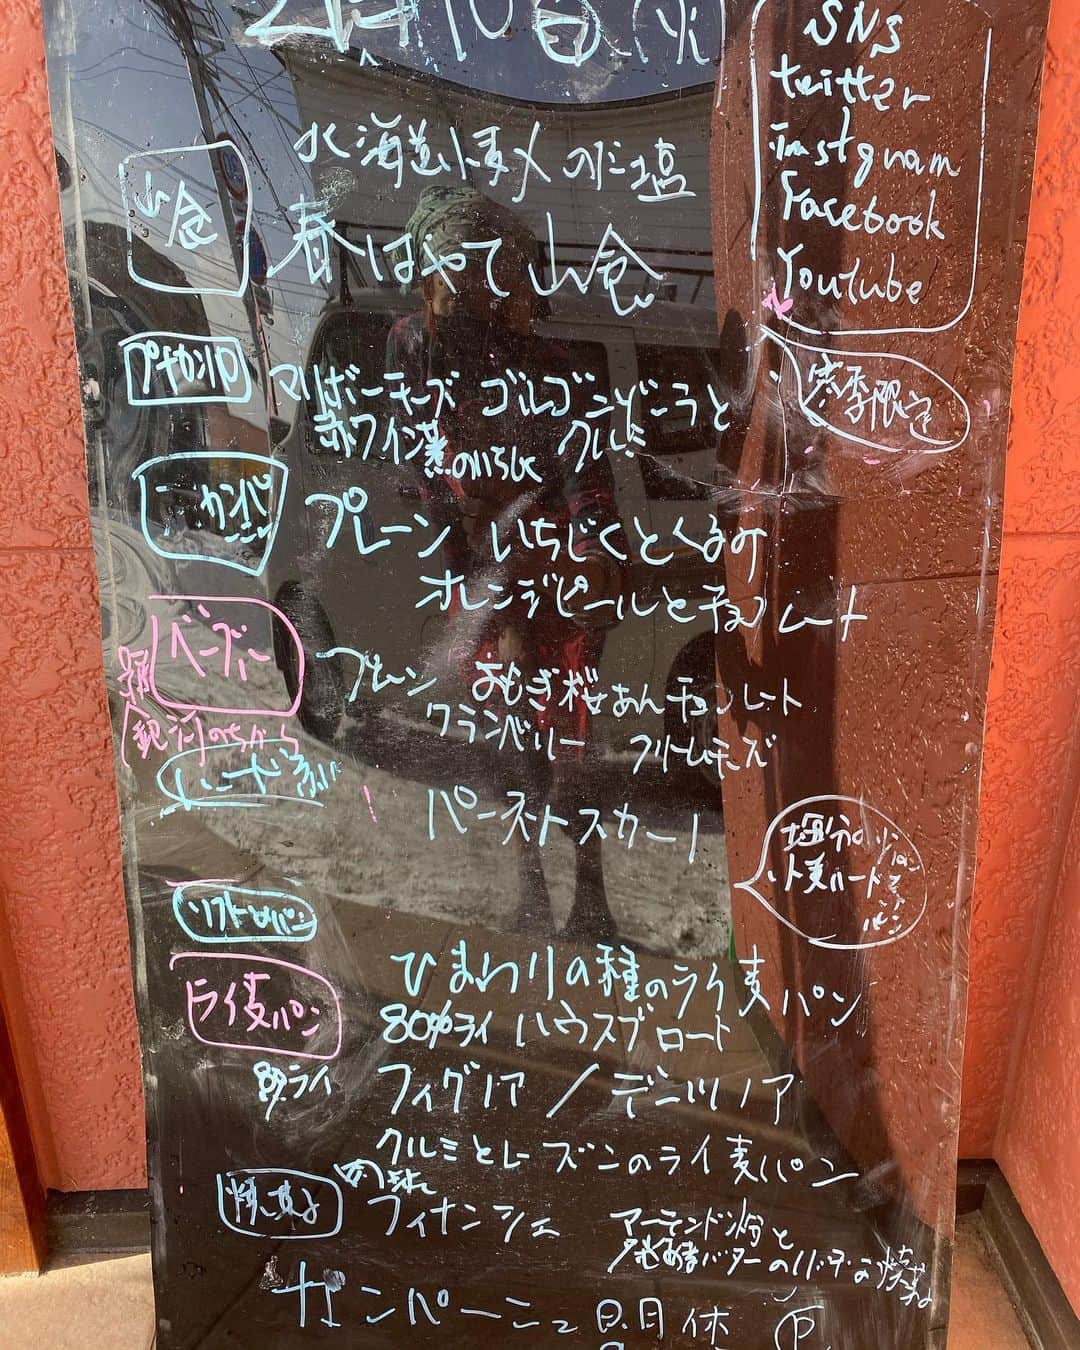 2月10日(火)
SNS
twitter
instgram
Facebook
Youtube
山食
北海道小麦〆の
塩
春はやて山食
プチカンパ
寒季限定
マリボーチーズ ゴルゴンゾーラと
赤ワイン煮のいちじく クルミ
カンパ
プレーン いちじくとくるみ
オレンジピールとチョコレート
ベーグル
銀河のちから
プレーン よもぎ桜あんチョコレート
クランベリー クリームチーズ
ハード
塩分の少ない
小麦ハード
パン
ソフトめパン
ライ麦パン
ひまわりの種のライ麦パン
80%ライ ハウスブロート
ライ
フィグノア / デーツノア
クルミとレーズンのライ麦パン
焼菓子
フィナンシェ
アーモンド粉と
発酵バターのリッチな焼菓子
カンパーニュ 日.月休 P